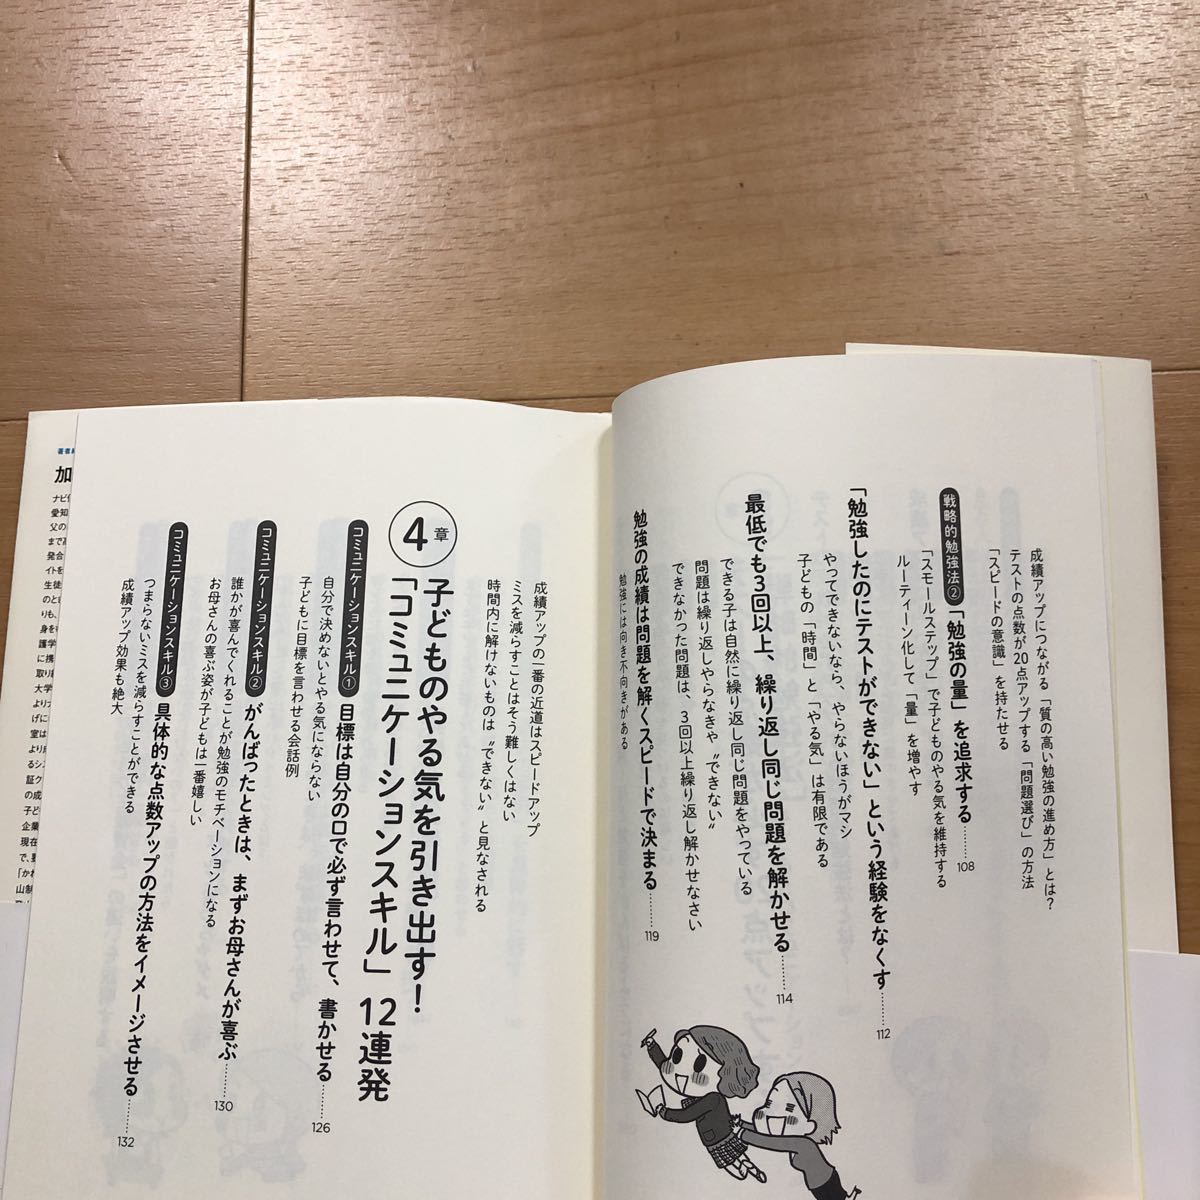 成績アップにつながる「質の高い勉強の進め方」とは?
テストの点数が20点アップする「問題選び」の方法
「スピードの意識」を持たせる
戦略的勉強法② 「勉強の量」を追求する
108
「スモールステップ」で子どものやる気を維持する
ルーティーン化して「量」を増やす
「勉強したのにテストができない」という経験をなくす
112
やってできないなら、やらないほうがマシ
子どもの「時間」と「やる気」は有限である
最低でも3回以上、繰り返し同じ問題を解かせる
114
できる子は自然に繰り返し同じ問題をやっている
問題は繰り返しやらなきゃ〝できない〟
できなかった問題は、3回以上繰り返し解かせなさい
勉強の成績は問題を解くスピードで決まる
119
勉強には向き不向きがある
成績アップの一番の近道はスピードアップ
ミスを減らすことはそう難しくはない
時間内に解けないものは〝できない〟と見なされる
4章
子どものやる気を引き出す!
「コミュニケーションスキル」12連発
コミュニケーションスキル① 目標は自分の口で必ず言わせて、書かせる
126
自分で決めないとやる気にならない
子どもに目標を言わせる会話例
コミュニケーションスキル② がんばったときは、まずお母さんが喜ぶ
130
誰かが喜んでくれることが勉強のモチベーションになる
お母さんの喜ぶ姿が子どもは一番嬉しい
コミュニケーションスキル③ 具体的な点数アップの方法をイメージさせる
132
つまらないミスを減らすことができる
成績アップ効果も絶大